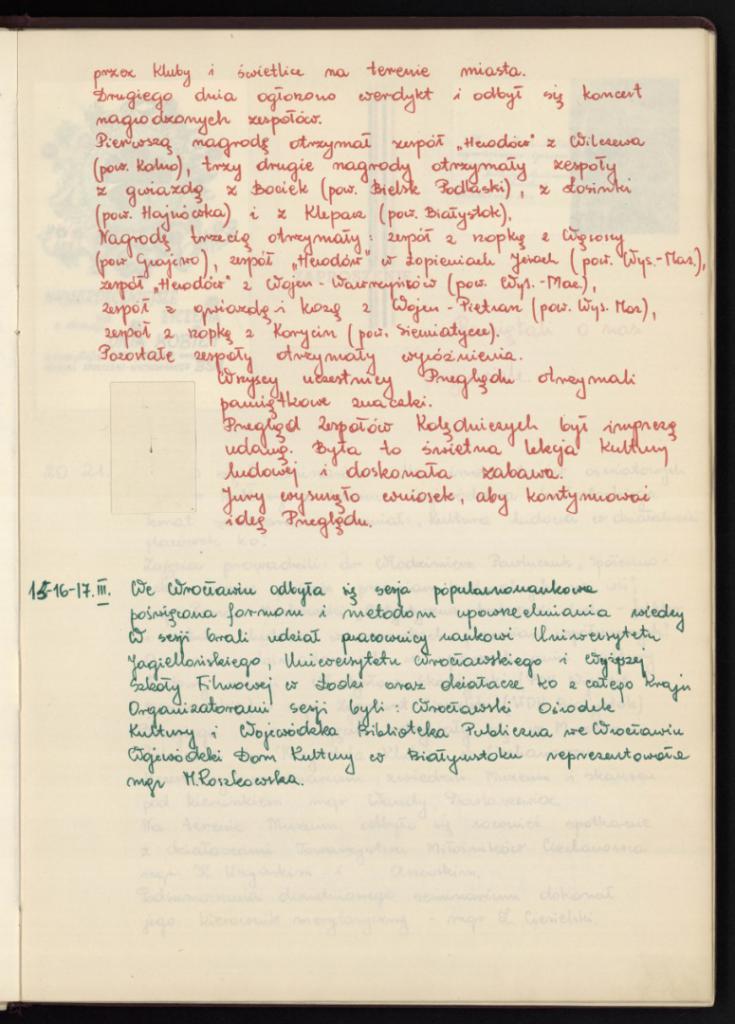 przez kluby i świetlice na terenie miasta.
Drugiego dnia ogłoszono werdykt i odbył się koncert
nagrodzonych zespołów.
Pierwszą nagrodę otrzymał zespół „Herodów" z Wilczewa
(pow. Kolno), trzy drugie nagrody otrzymały zespoły
z gwiazdą z Bociek (pow. Bielsk Podlaski), z Łosinki
(pow. Hajnówka) i z Klepacz (pow. Białystok).
Nagrodę trzecią otrzymały: zespół z szopką z Wąsosz
(pow. Grajewo), zespół „Herodów" w Łopieniach Jeżach (pow. Wys.-Maz.),
zespół „Herodów" z Wojen-Wawrzyńców (pow. Wys.-Maz.),
zespół z gwiazdą i kozą z Wojen-Pietrasz (pow. Wys. Maz),
zespół z szopką z Korycin (pow. Siemiatycze).
Pozostałe zespoły otrzymały wyróżnienia.
Wszyscy uczestnicy Przeglądu otrzymali
pamiątkowe znaczki.
Przegląd Zespołów Kolędniczych był imprezą
udaną. Była to świetna lekcja kultury
ludowej doskonała zabawa.
Jury wysunęło wniosek, aby kontynuować
ideę Przeglądu.
15-16-17.III. We Wrocławiu odbyła się sesja popularnonaukowa
poświęcona formom i metodom upowszechniania wiedzy
W sesji brali udział pracownicy naukowi Uniwersytetu
Jagiellońskiego, Uniwersytetu Wrocławskiego i Wyższej
Szkoły Filmowej w Łodzi oraz działacze ko z całego kraju
Organizatorami sesji byli: Wrocławski Ośrodek
Kultury i Wojewódzka Biblioteka Publiczna we Wrocławiu
Wojewódzki Dom Kultury w Białymstoku reprezentowała
mgr M. Roszkowska.